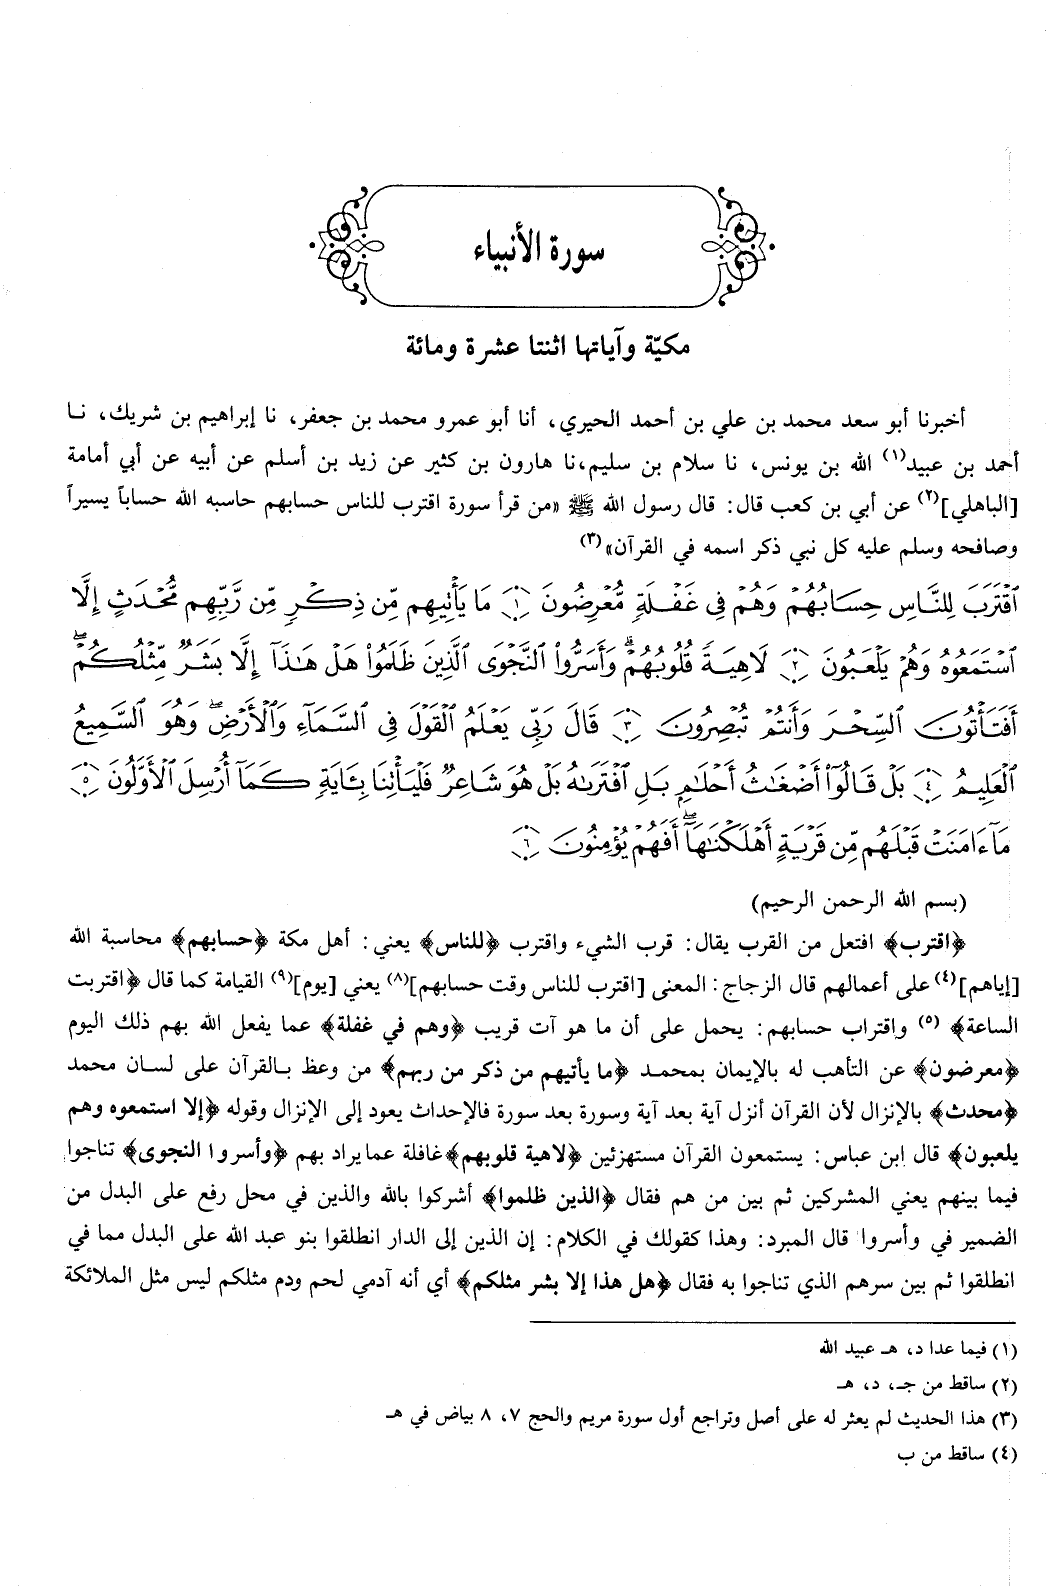 سورة الأنبياء
مكيّة وآياتها اثنتا عشرة ومائة
أخبرنا أبو سعد محمد بن علي بن أحمد الحيري، أنا أبو عمرو محمد بن جعفر، نا إبراهيم بن شريك، نا
أحمد بن عبيد(١) الله بن يونس، نا سلام بن سليم،نا هارون بن كثير عن زيد بن أسلم عن أبيه عن أبي أمامة
[الباهلي](٢) عن أبي بن كعب قال: قال رسول الله ﷺ «من قرأ سورة اقترب للناس حسابهم حاسبه الله حساباً يسيراً
وصافحه وسلم عليه كل نبي ذكر اسمه في القرآن»(٣)
ٱقْتَرَبَ لِلنَّاسِ حِسَابُهُمْ وَهُمْ فِي غَفْلَةٍ مُّعْرِضُونَ ﴿١﴾ مَا يَأْتِيهِم مِّن ذِكْرٍ مِّن رَّبِّهِم مُّحْدَثٍ إِلَّا
ٱسْتَمَعُوهُ وَهُمْ يَلْعَبُونَ ﴿٢﴾ لَاهِيَةً قُلُوبُهُمْ ۗ وَأَسَرُّوا۟ ٱلنَّجْوَى ٱلَّذِينَ ظَلَمُوا۟ هَلْ هَـٰذَآ إِلَّا بَشَرٌ مِّثْلُكُمْ ۖ
أَفَتَأْتُونَ ٱلسِّحْرَ وَأَنتُمْ تُبْصِرُونَ ﴿٣﴾ قَالَ رَبِّي يَعْلَمُ ٱلْقَوْلَ فِي ٱلسَّمَآءِ وَٱلْأَرْضِ ۖ وَهُوَ ٱلسَّمِيعُ
ٱلْعَلِيمُ ﴿٤﴾ بَلْ قَالُوٓا۟ أَضْغَـٰثُ أَحْلَـٰمٍ بَلِ ٱفْتَرَىٰهُ بَلْ هُوَ شَاعِرٌ فَلْيَأْتِنَا بِـَٔايَةٍ كَمَآ أُرْسِلَ ٱلْأَوَّلُونَ ﴿٥﴾
مَآ ءَامَنَتْ قَبْلَهُم مِّن قَرْيَةٍ أَهْلَكْنَـٰهَآ ۖ أَفَهُمْ يُؤْمِنُونَ ﴿٦﴾
(بسم الله الرحمن الرحيم)
﴿اقترب﴾ افتعل من القرب يقال: قرب الشيء واقترب ﴿للناس﴾ يعني: أهل مكة ﴿حسابهم﴾ محاسبة الله
[إياهم](٤) على أعمالهم قال الزجاج: المعنى [اقترب للناس وقت حسابهم](٨) يعني [يوم](٩) القيامة كما قال ﴿اقتربت
الساعة﴾ (٥) واقتراب حسابهم: يحمل على أن ما هو آت قريب ﴿وهم في غفلة﴾ عما يفعل الله بهم ذلك اليوم
﴿معرضون﴾ عن التأهب له بالإيمان بمحمد ﴿ما يأتيهم من ذكر من ربهم﴾ من وعظ بالقرآن على لسان محمد
﴿محدث﴾ بالإنزال لأن القرآن أنزل آية بعد آية وسورة بعد سورة فالإحداث يعود إلى الإنزال وقوله ﴿إلا استمعوه وهم
يلعبون﴾ قال ابن عباس: يستمعون القرآن مستهزئين ﴿لاهية قلوبهم﴾غافلة عما يراد بهم ﴿وأسروا النجوى﴾ تناجوا
فيما بينهم يعني المشركين ثم بين من هم فقال ﴿الذين ظلموا﴾ أشركوا بالله والذين في محل رفع على البدل من
الضمير في وأسروا قال المبرد: وهذا كقولك في الكلام: إن الذين إلى الدار انطلقوا بنو عبد الله على البدل مما في
انطلقوا ثم بين سرهم الذي تناجوا به فقال ﴿هل هذا إلا بشر مثلكم﴾ أي أنه آدمي لحم ودم مثلكم ليس مثل الملائكة
(١) فيما عدا د، هـ عبيد الله
(٢) ساقط من جـ، د، هـ
(٣) هذا الحديث لم يعثر له على أصل وتراجع أول سورة مريم والحج ٧، ٨ بياض في هـ
(٤) ساقط من ب